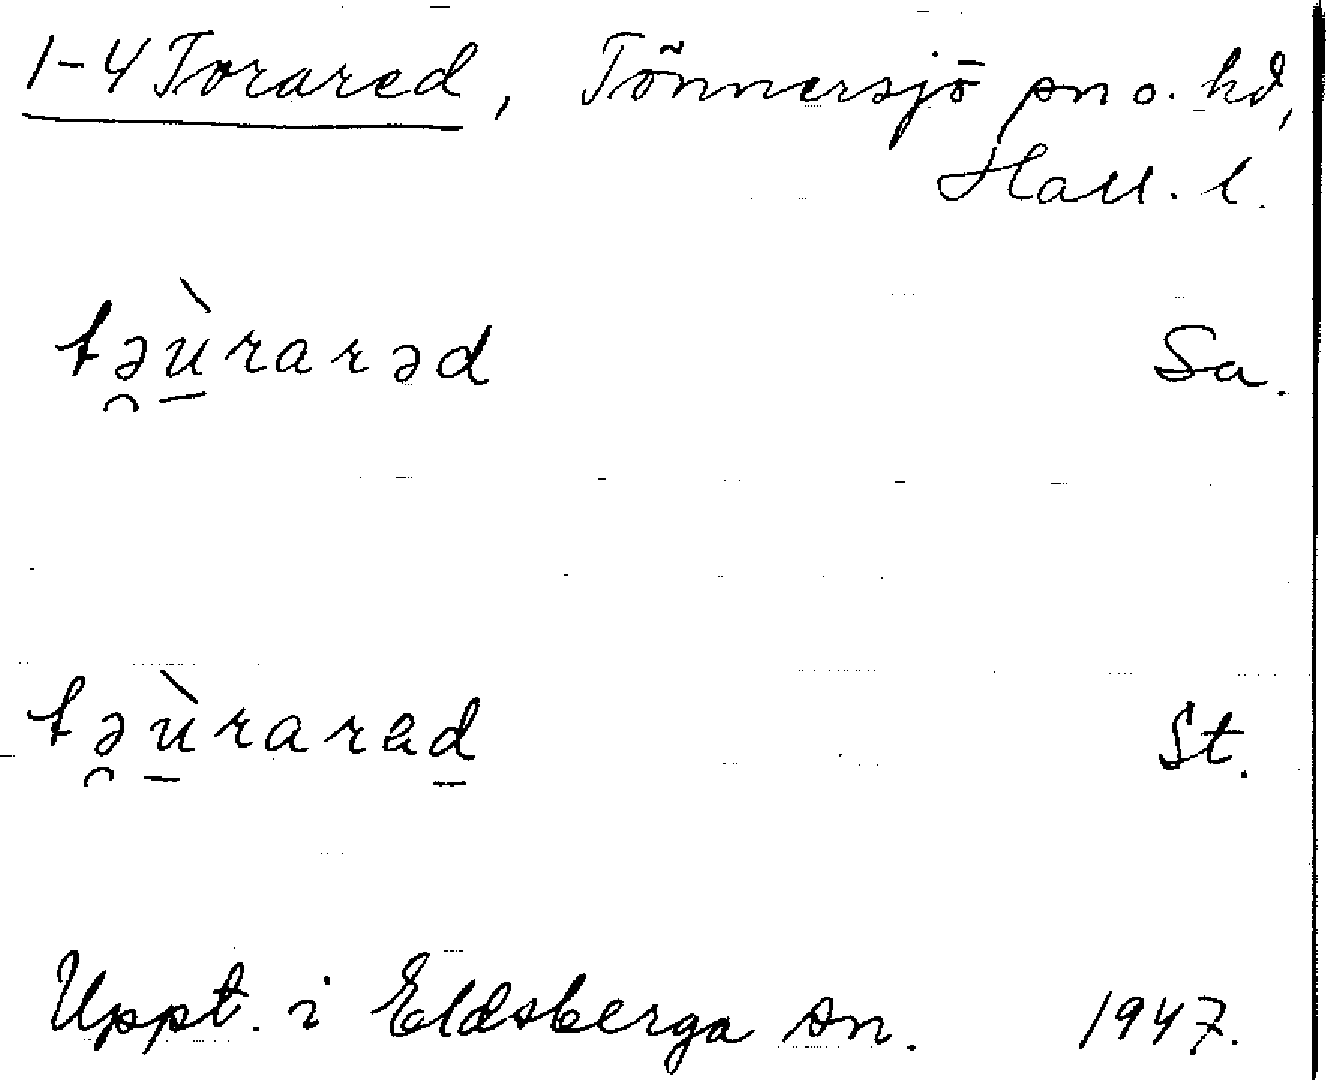 1-4 Torared, Tönnersjö sn o. hd,
Hall. l.
tə̯ù̱rarəd Sa.
tə̯ù̱rarad̲ St.
Uppt. i Eldsberga sn. 1947.